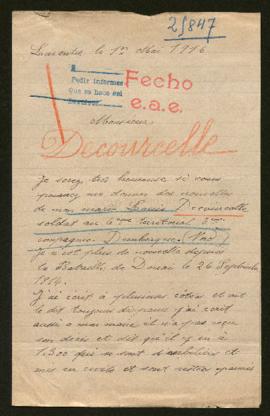 25847
le 1er Mai 1916
Pedir informes
que se hace así
Fecho
e.a.e.
Monsieur
Decourcelle
Je serez très heureuse si vous
nous donner des nouvelles
de mon mari Louis Decourcelle
soldat au territorial
compagnie. Dunkerque (Nord)
Je n'est plus de nouvelle depuis
la Bataille de Douai le 26 Septembre
1914.
J'ai écrit à plusieurs et ont
le dit toujours disparu j'ai écrit
aussi a mon maire il n'a pas reçu
son decès et dit qu'il y en a
1.300 qui se sont
mis en et sont restés